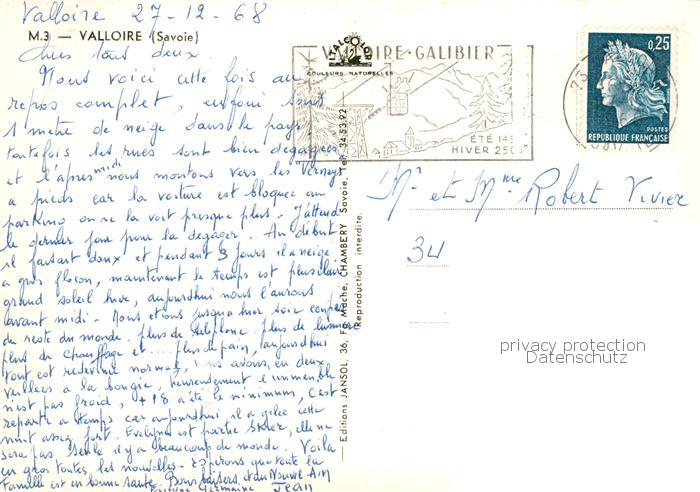 Valloire 27-12-68
M.3 — VALLOIRE (Savoie)
Chers tous deux
Nous voici cette fois au
repos complet, enfoui sous
1 mètre de neige dans le pays
toutefois les rues sont bien dégagées
et l'après midi nous montons vers les Verneys
à pieds car la voiture est bloquée au
parking on ne la voit presque plus. J'attend
le dernier jour pour la dégager. Au début
il faisait doux et pendant 3 jours il a neigé
à gros flocon, maintenant le temps est plus clair
grand soleil hier, aujourd'hui nous l'aurons
avant midi. Nous etions jusqu'a hier soir coupés
du reste du monde. plus de téléphone. plus de lumière
plus de chauffage et.... plus de pain, aujourd'hui
tout est redevenu normal, nous avons eu deux
veillées à la bougie, heureusement l'immeuble
n'est pas froid, +18 a été le minimum, C'est
reparti a temps car aujourd'hui il a gelé cette
nuit assez fort. Evelyne est partie skier, elle ne
sera pas seule il y a beaucoup de monde. Voilà
en gros toutes les nouvelles. Espérons que toute la
famille est en bonne santé. Bons baisers et du Nouvel An
Germaine Jean
ITALCOLOR
COULEURS NATURELLES
— Editions JANSOL, 36, Fg Maché, CHAMBERY Savoie, Tél. 34.53.92
(Reproduction interdite.
VALLOIRE-GALIBIER
ÉTÉ
HIVER
0,25
POSTES
REPUBLIQUE FRANÇAISE
Mr et Mme Robert Vivier
34
privacy protection
Datenschutz